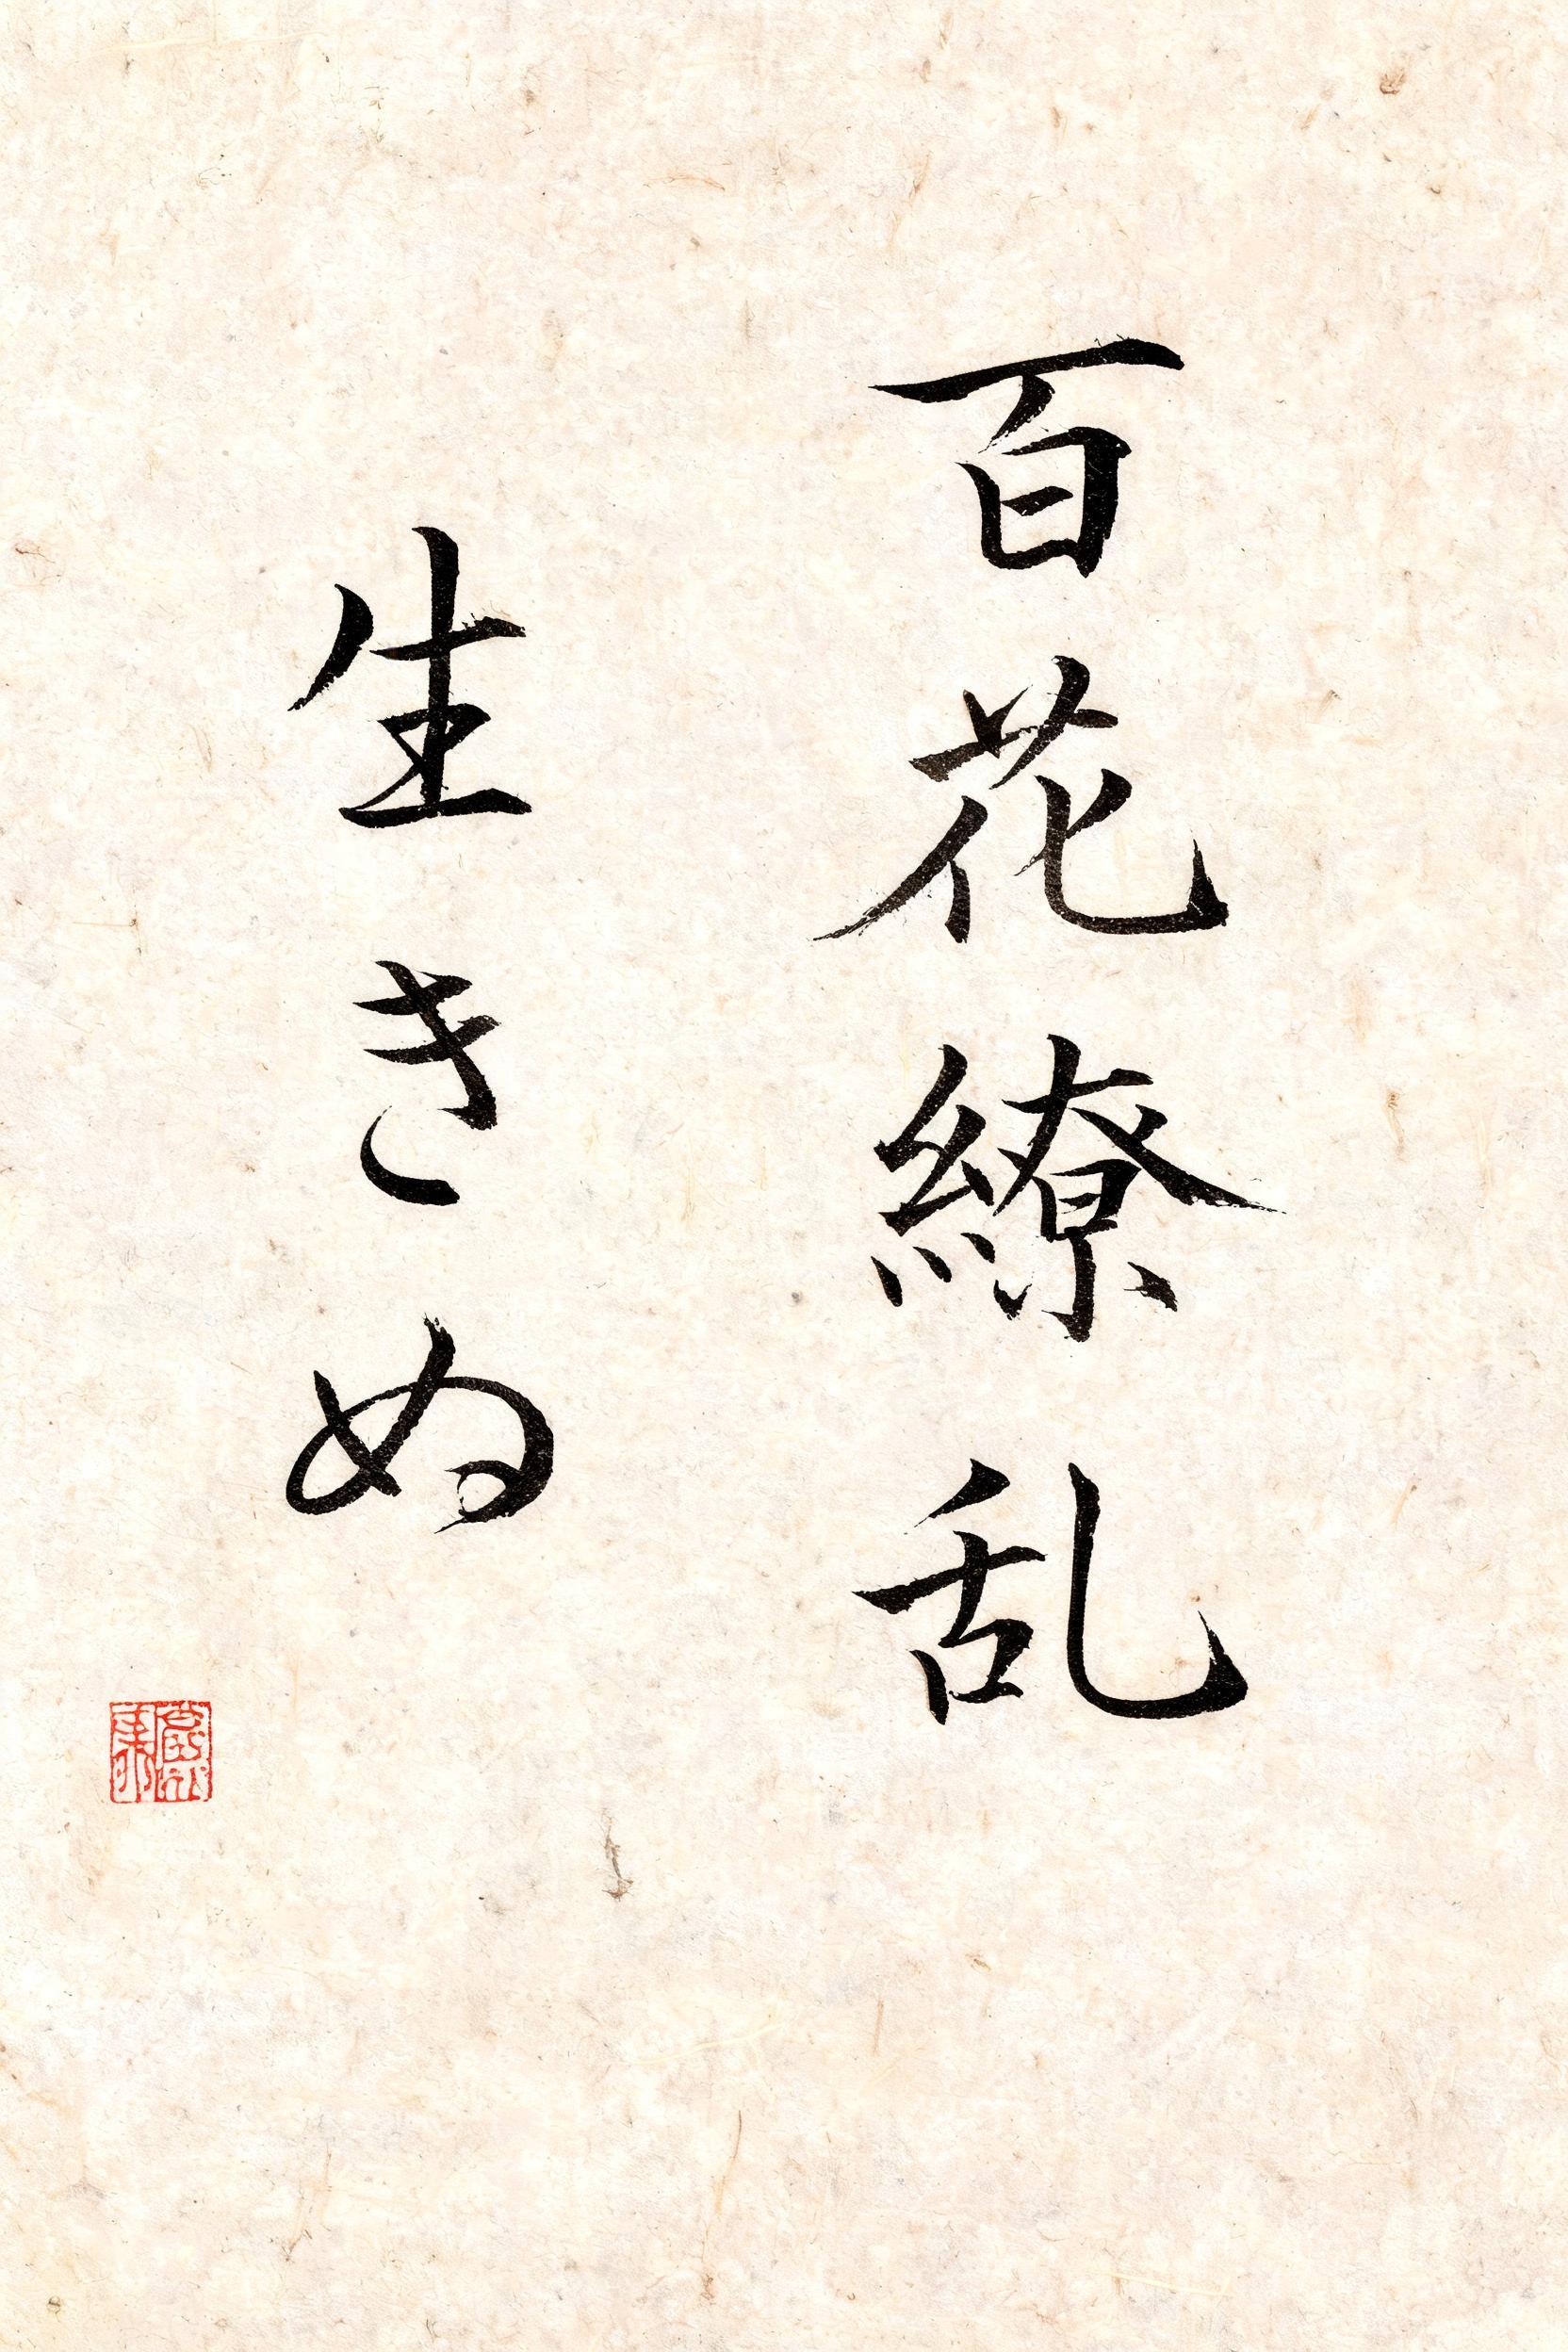 百花繚乱
生きぬ